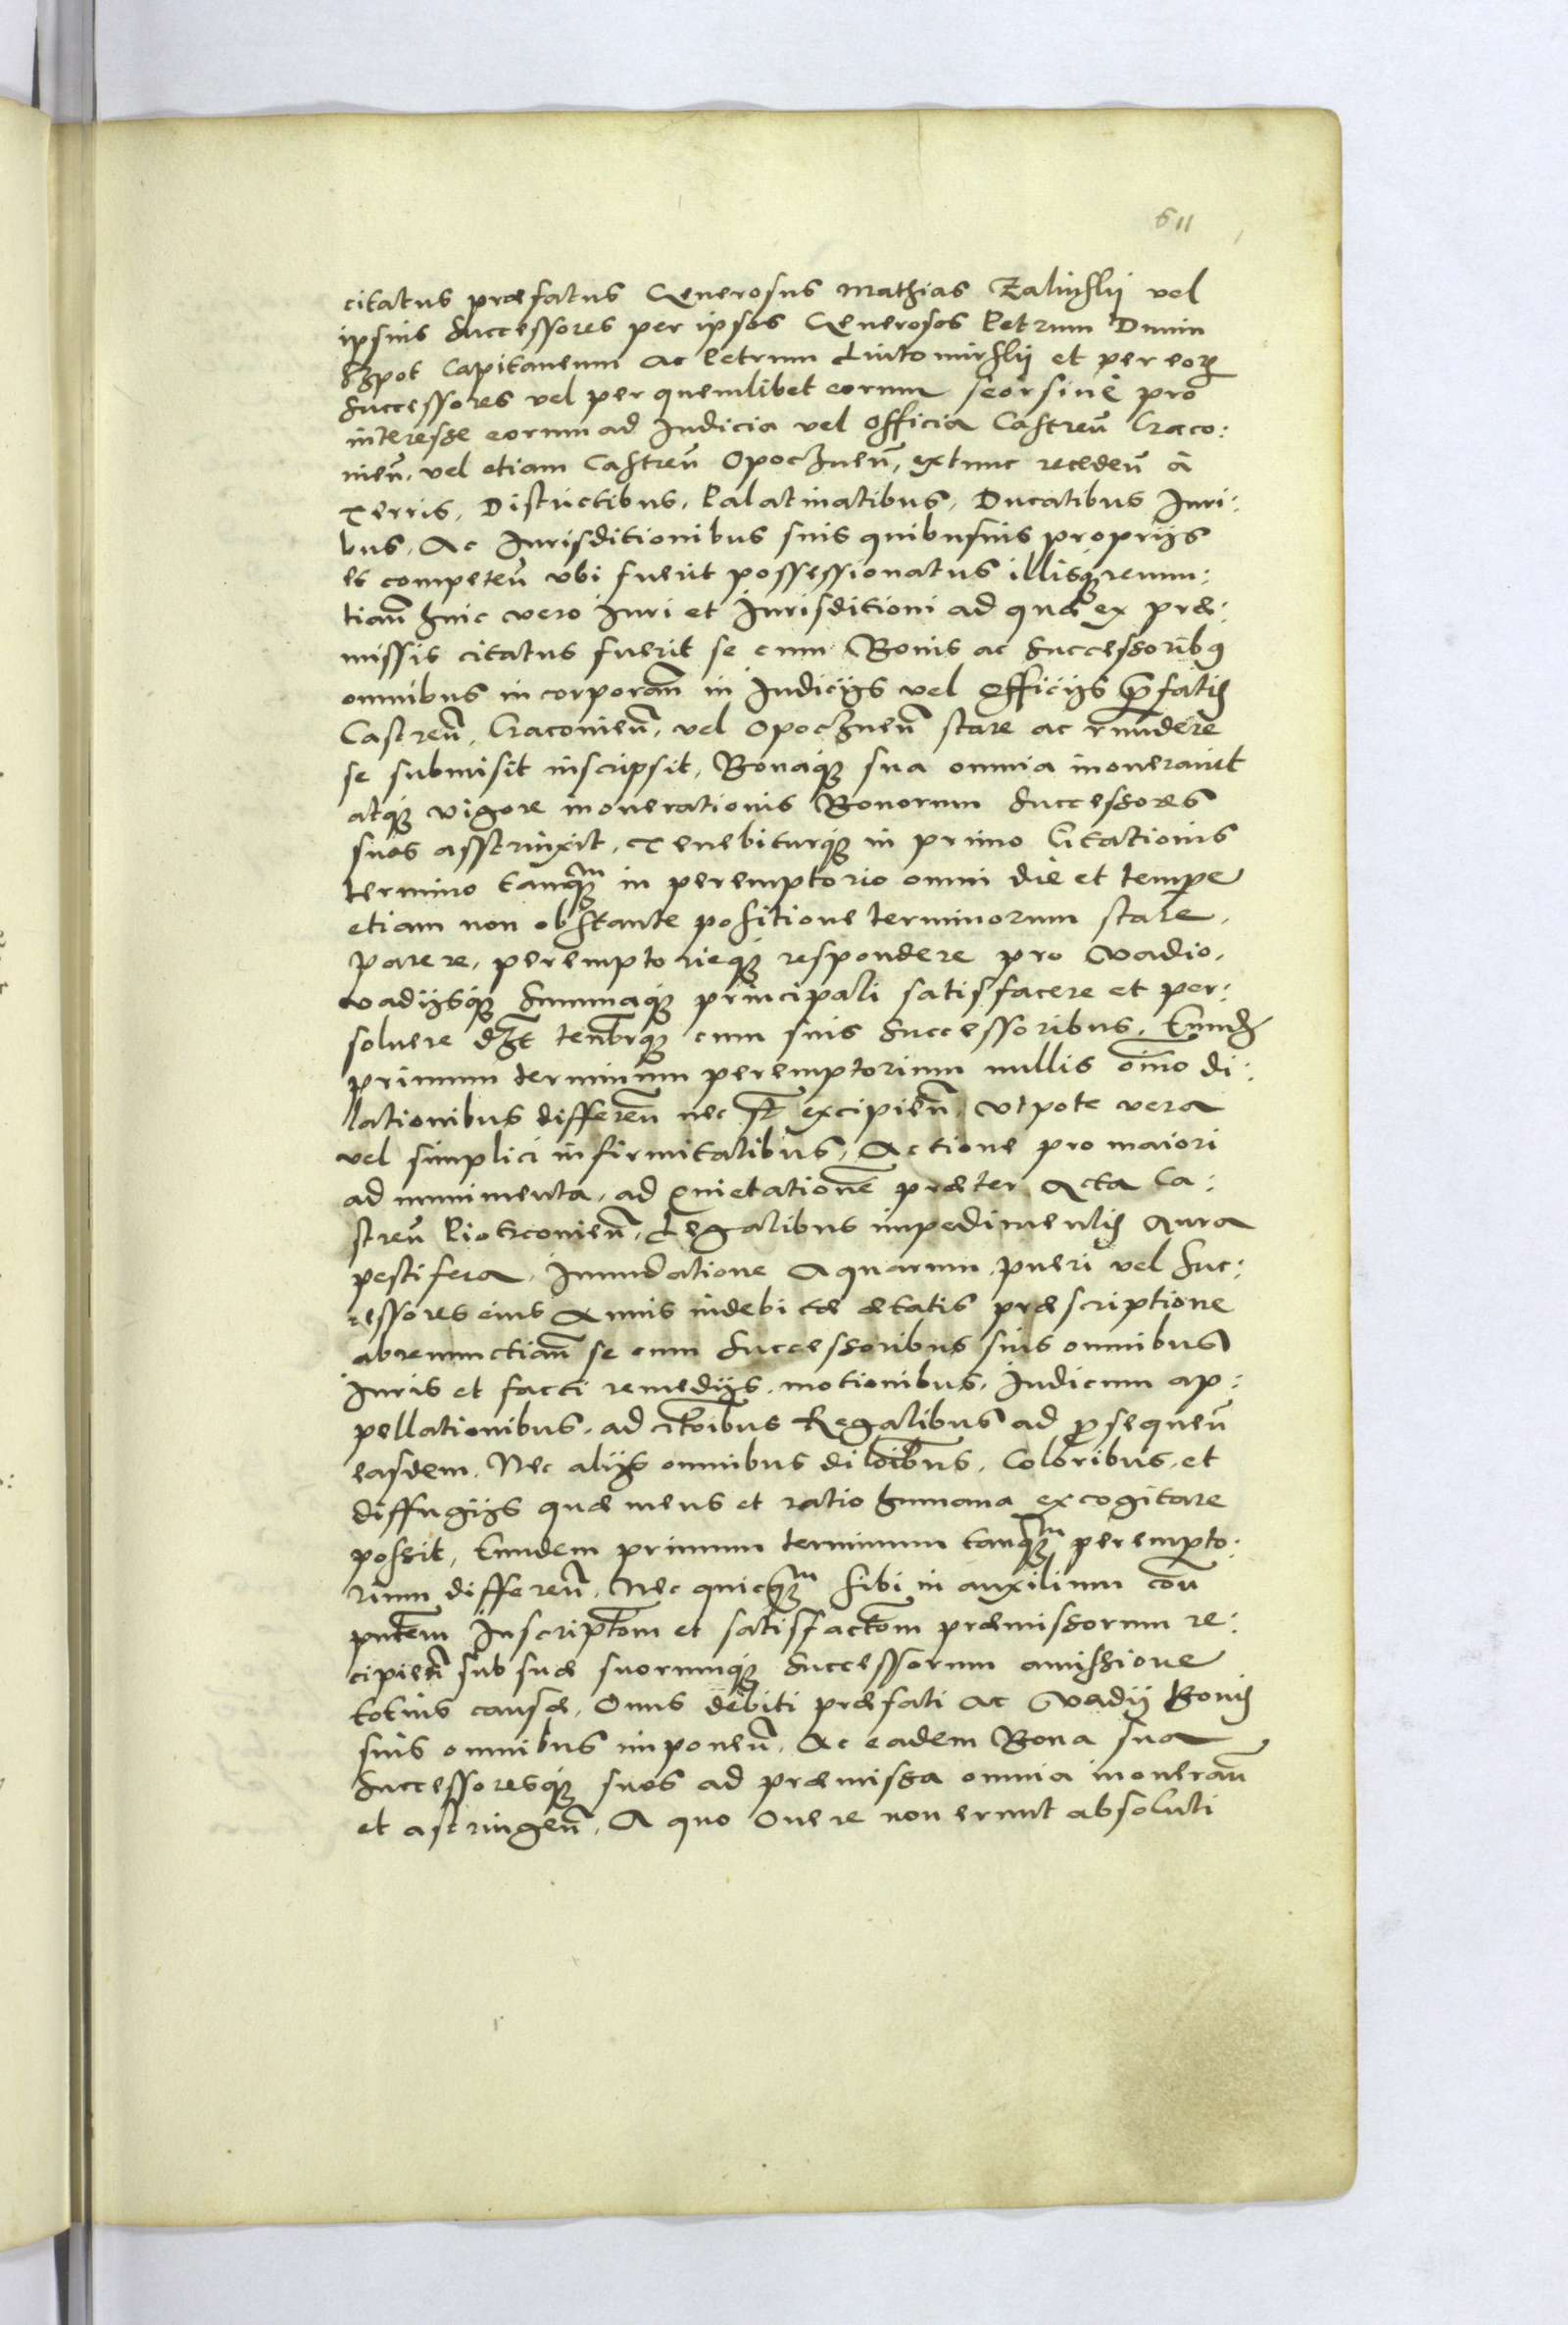 611
citatus præfatus Generosus Mathias Zalinsky vel
ipsius Successores per ipsos Generosos Petrum Dunin
Spot Capitaneum ac Petrum Lutomirsky et per eorum
Successores vel per quemlibet eorum seorsine pro
interesse eorum ad Iudicia vel Officia Castreñ Craco:
nieñ, vel etiam Castreñ Opocznen̄, extunc recedeñ à
Terris, Districtibus, Palatinatibus, Ducatibus Iuri:
bus, Ac Iurisditionibus suis quibusuis proprijs
es competeñ vbi fuerit possessionatus illisq̃ renun:
tiañ huic vero Iuri et Iurisditioni ad quæ ex præ:
missis citatus fuerit se cum Bonis ac Successoribus
omnibus incorporañ in Iudicijs vel Officijs p̄fatis
Castreñ, Cracovieñ, vel Opocznen̄ stare ac rñdere
se submisit inscripsit, Bonaq̃ sua omnia inonerauit
atq̃ vigore inonerationis Bonorum Successores
suos asstrinxit, Tenebiturq̃ in primo Citationis
termino tanq̃m in peremptorio omni die et tempe
etiam non obstante positione terminorum stare,
parere, peremptorieq̃ respondere pro vadio,
vadijsq̃ Summaq̃ principali satisfacere et per:
soluere dēt tenebrq̃ cum suis Successoribus, Eundē
primum terminum peremptorium nullis oīno di:
lationibus differeñ nec excipieñ, vtpote vera
vel simplici infirmitatibus, Actione pro maiori
ad munimenta, ad Quietationē præter Acta Ca:
streñ Piotrconieñ, Legalibus impedimentis Aura
pestifera, Inundatione Aquarum, pueri vel Suc:
cessores eius Annis indebitæ ætatis præscriptione
abrenunctiañ se cum Successoribus suis omnibus
Iuris et facti remedijs, motionibus, Iudicum ap:
pellationibus, ad citōibus Regalibus ad p̱sequeñ
easdem, Nec alijs omnibus dilōibus, Coloribus, et
diffugijs quæ mens et ratio humana excogitare
possit, Eundem primum terminum tanq̃m perempto:
rium differeñ, Nec quicq̃m sibi in auxilium con̄
pn̄tem Inscriptōm et satisfactōm præmissorum re:
cipieñ sub suæ suorumq̃ Successorum amissione
totius causæ, Onus debiti præfati ac Vadij Bonis
suis omnibus imponeñ, Ac eadem Bona sua
Successoresq̃ suos ad præmissa omnia inonerañ
et astringeñ, A quo Onere non erunt absoluti